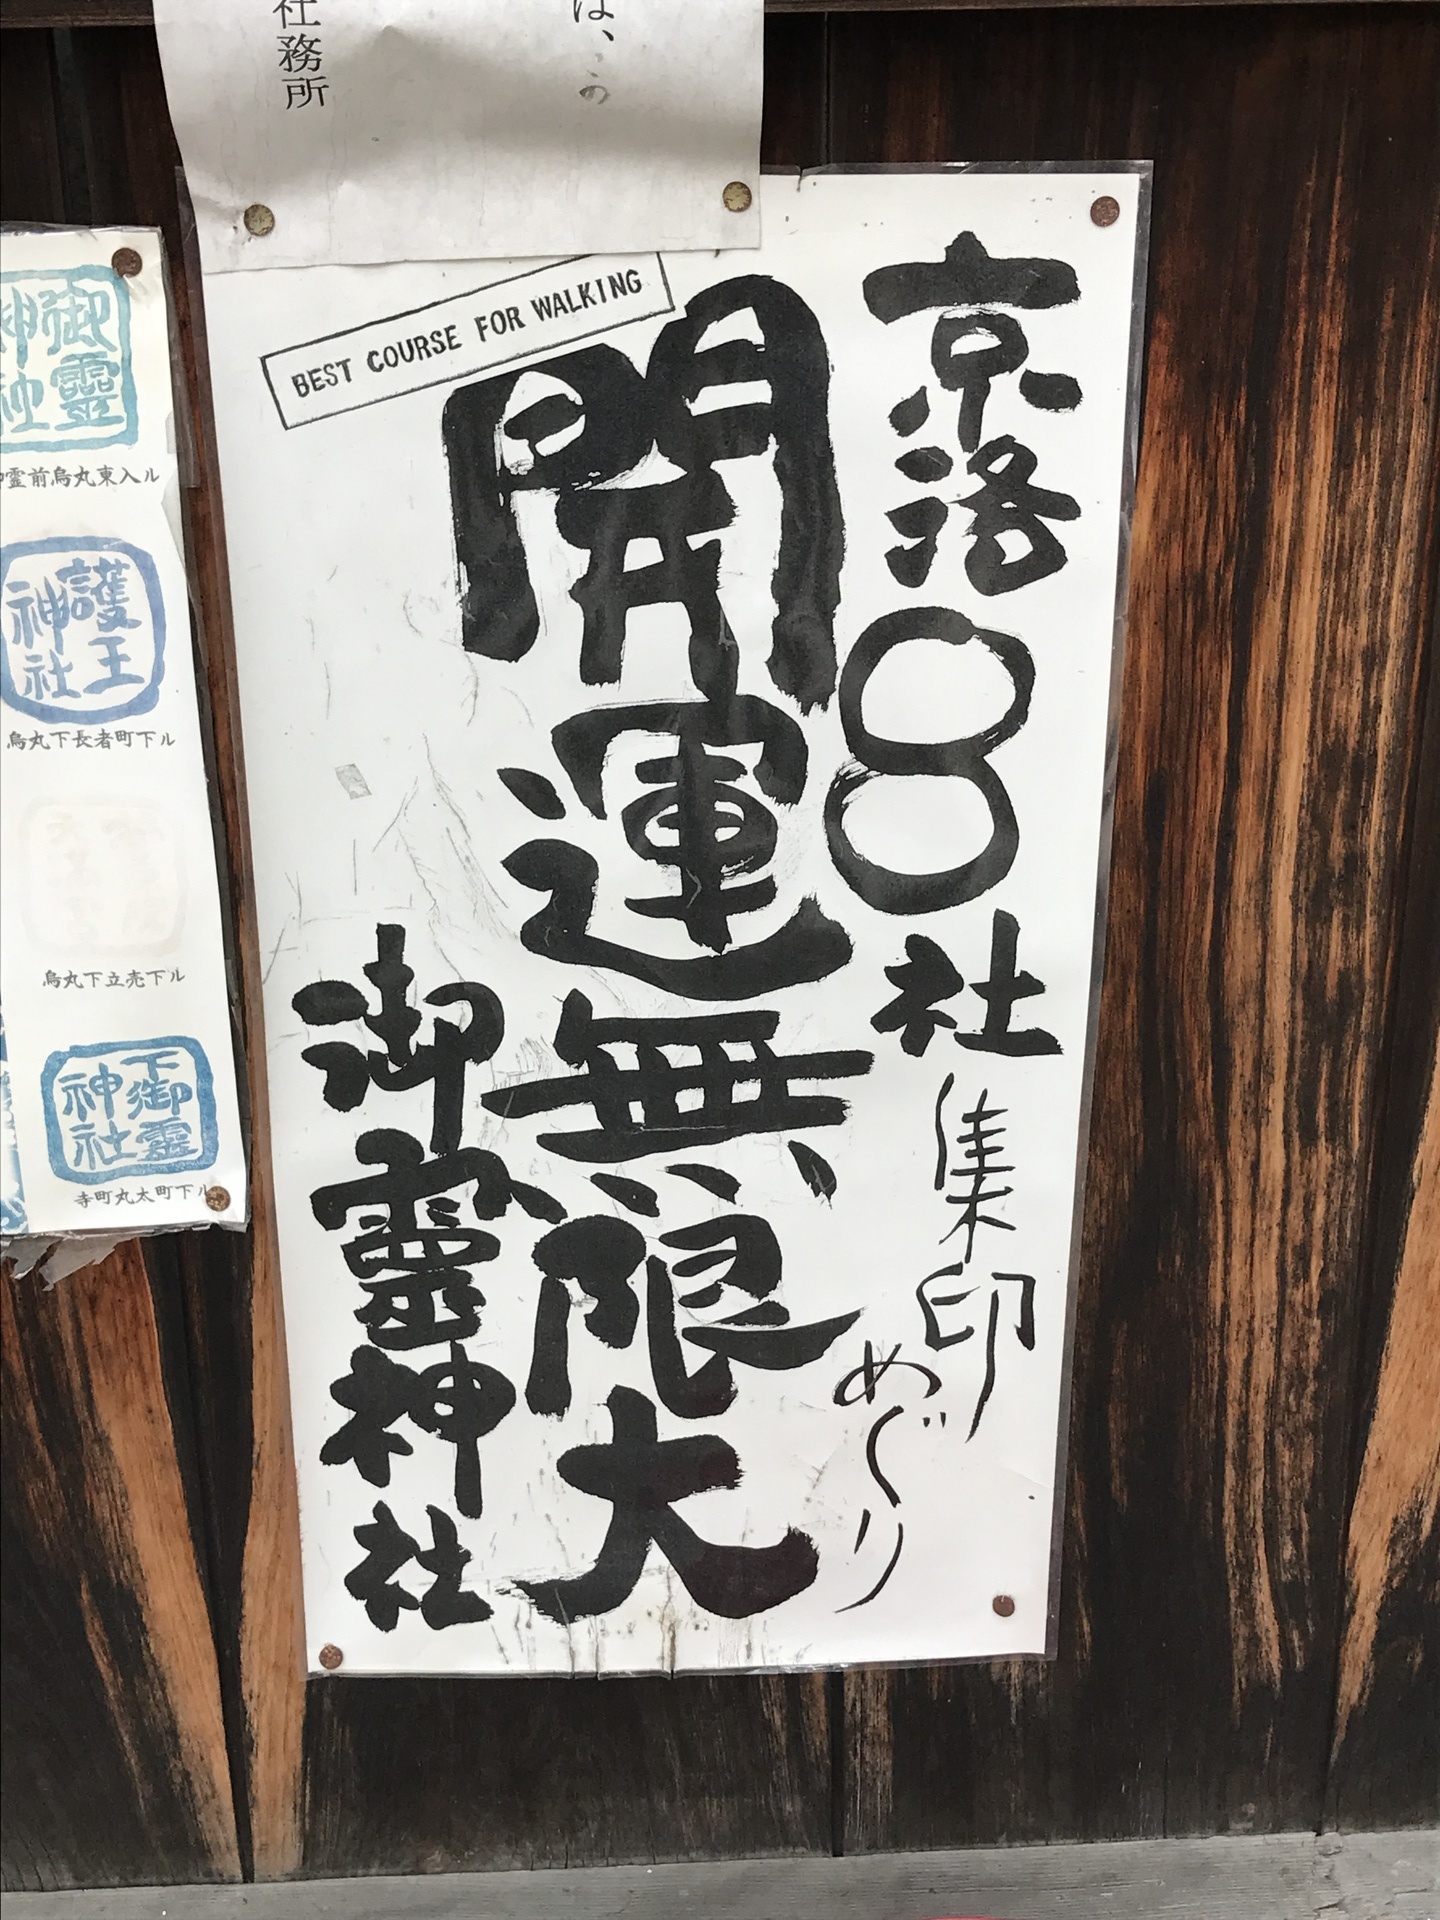 は、この
社務所
京洛8社集印めぐり
開運無限大
御靈神社
BEST COURSE FOR WALKING
御靈神社
霊前烏丸東入ル
護王神社
烏丸下長者町下ル
烏丸下立売下ル
下御靈神社
寺町丸太町下ル